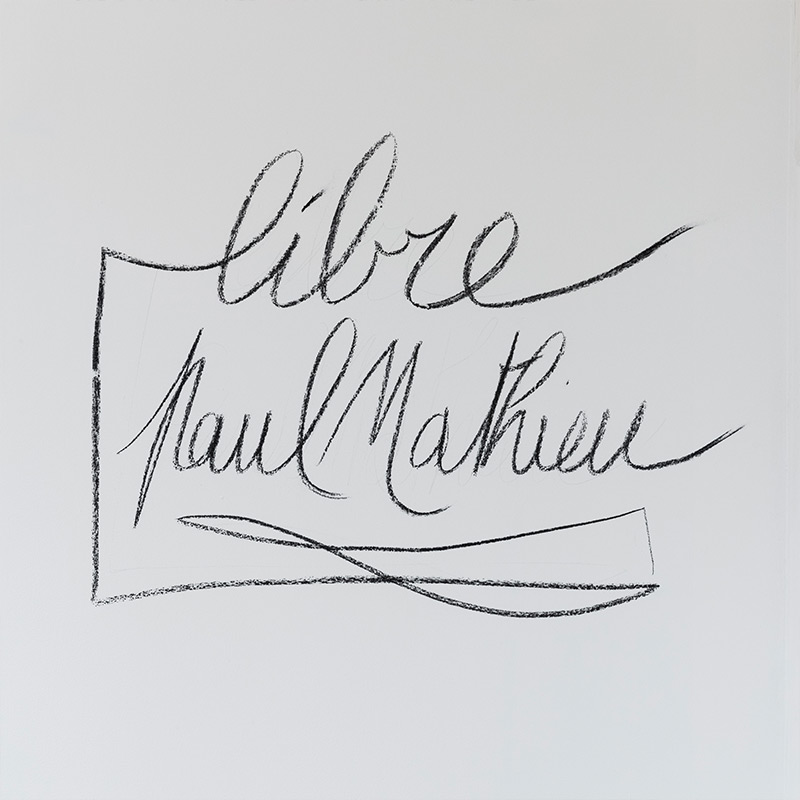 libre
paul Mathieu